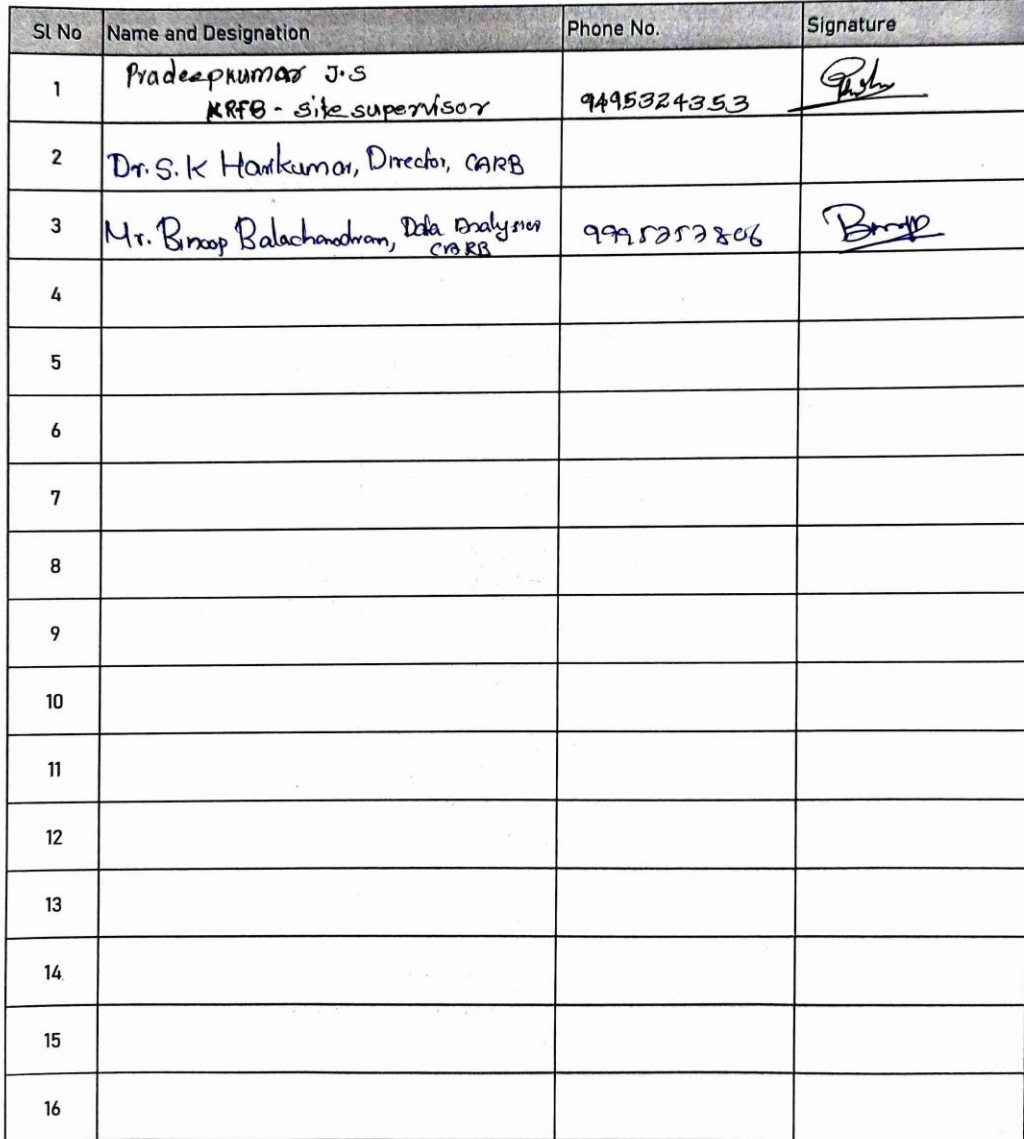 Sl No Name and Designation Phone No. Signature
1 Pradeepkumar J.S
KRFB - site supervisor 9495324353
2 Dr. S. K Harikumar, Director, CARB
3 Mr. Binoop Balachandran, Data Analysis
CARB
4
5
6
7
8
9
10
11
12
13
14
15
16